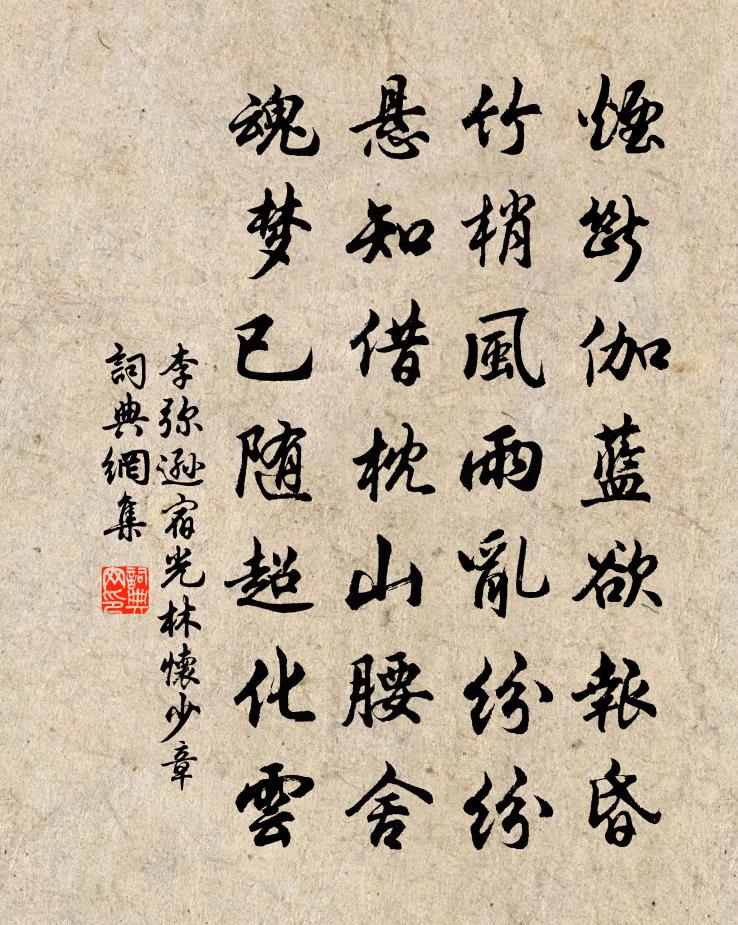 煙斷伽藍欲報昏
竹梢風雨亂紛紛
悬知借枕山腰舍
魂梦已随超化雲
李弥遜宿光林懷少章
詞典網集
詞典网印